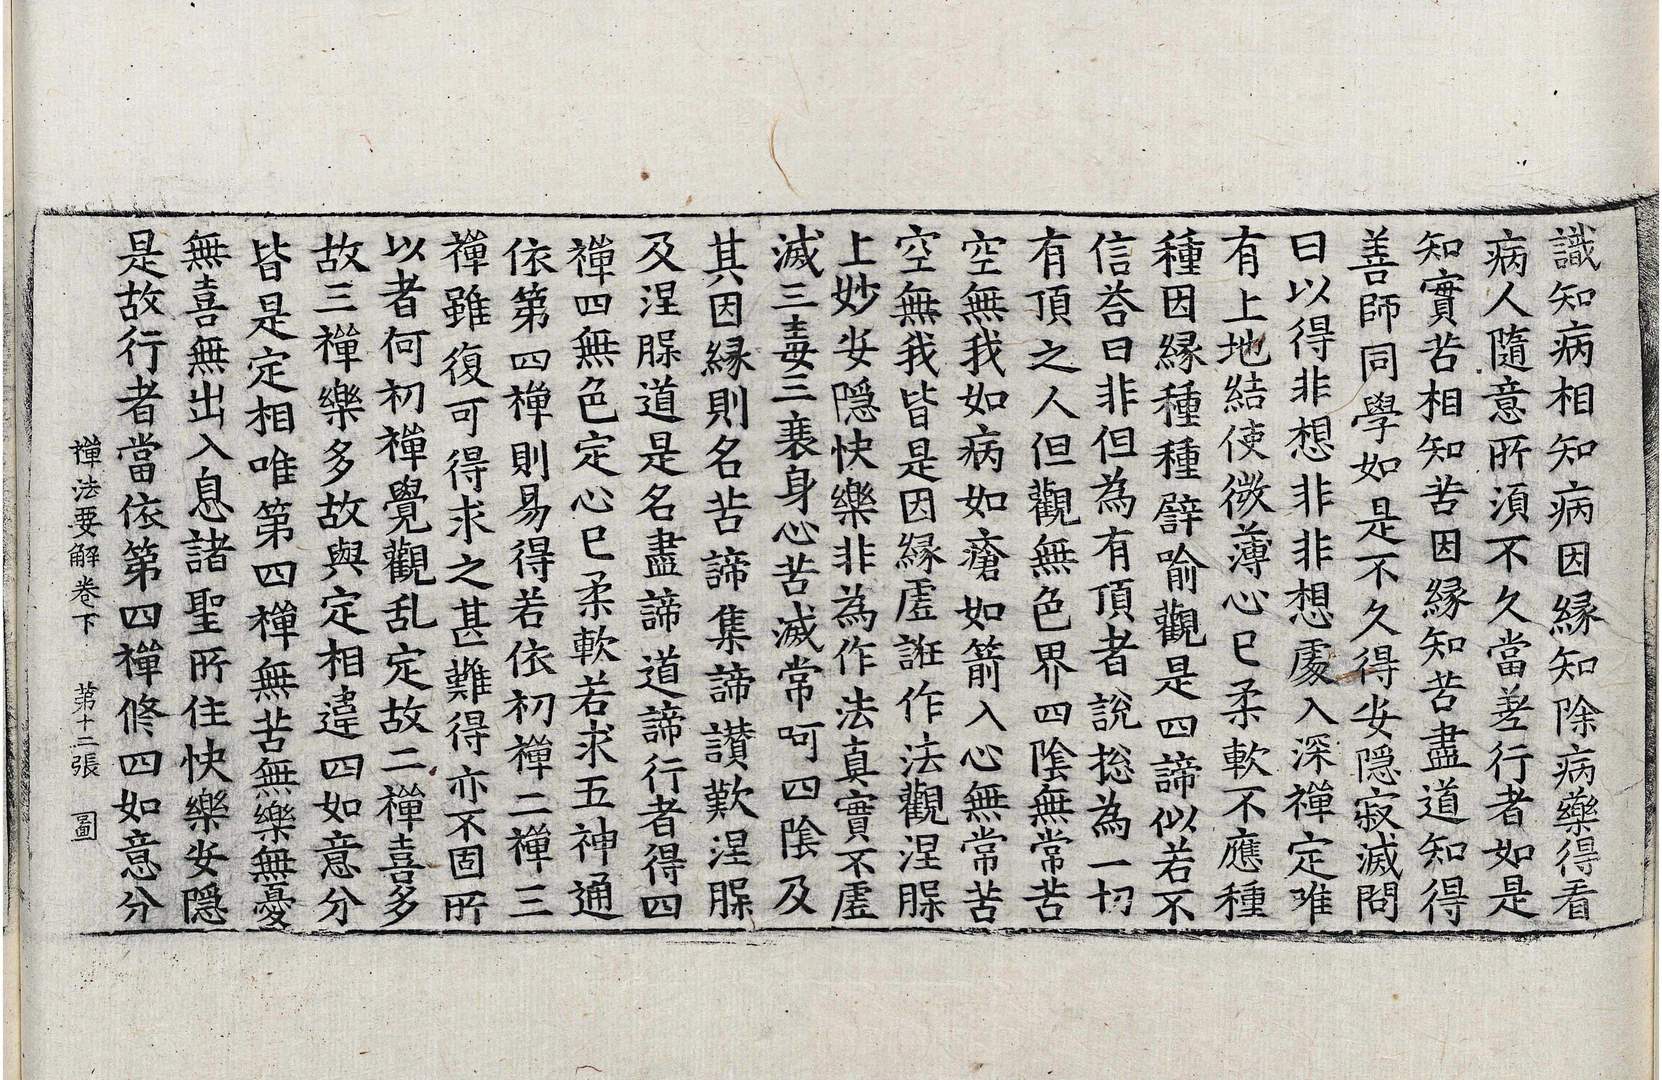 識知病相知病因縁知除病藥得看
病人隨意所須不久當差行者如是
知實苦相知苦因縁知苦盡道知得
善師同學如是不久得安隠寂滅問
曰以得非想非非想處入深禪定唯
有上地結使微薄心已柔軟不應種
種因縁種種譬喻觀是四諦似若不
信荅曰非但為有頂者說捴為一切
有頂之人但觀無色界四陰無常苦
空無我如病如瘡如箭入心無常苦
空無我皆是因縁虛誑作法觀涅槃
上妙安隠快樂非為作法真實不虛
滅三毒三衰身心苦滅常呵四陰及
其因縁則名苦諦集諦讃歎涅槃
及涅槃道是名盡諦道諦行者得四
禪四無色定心已柔軟若求五神通
依第四禪則易得若依初禪二禪三
禪雖復可得求之甚難得亦不固所
以者何初禪覺觀乱定故二禪喜多
故三禪樂多故與定相違四如意分
皆是定相唯第四禪無苦無樂無憂
無喜無出入息諸聖所住快樂安隠
是故行者當依第四禪修四如意分
禪法要解卷下 第十二張 圖